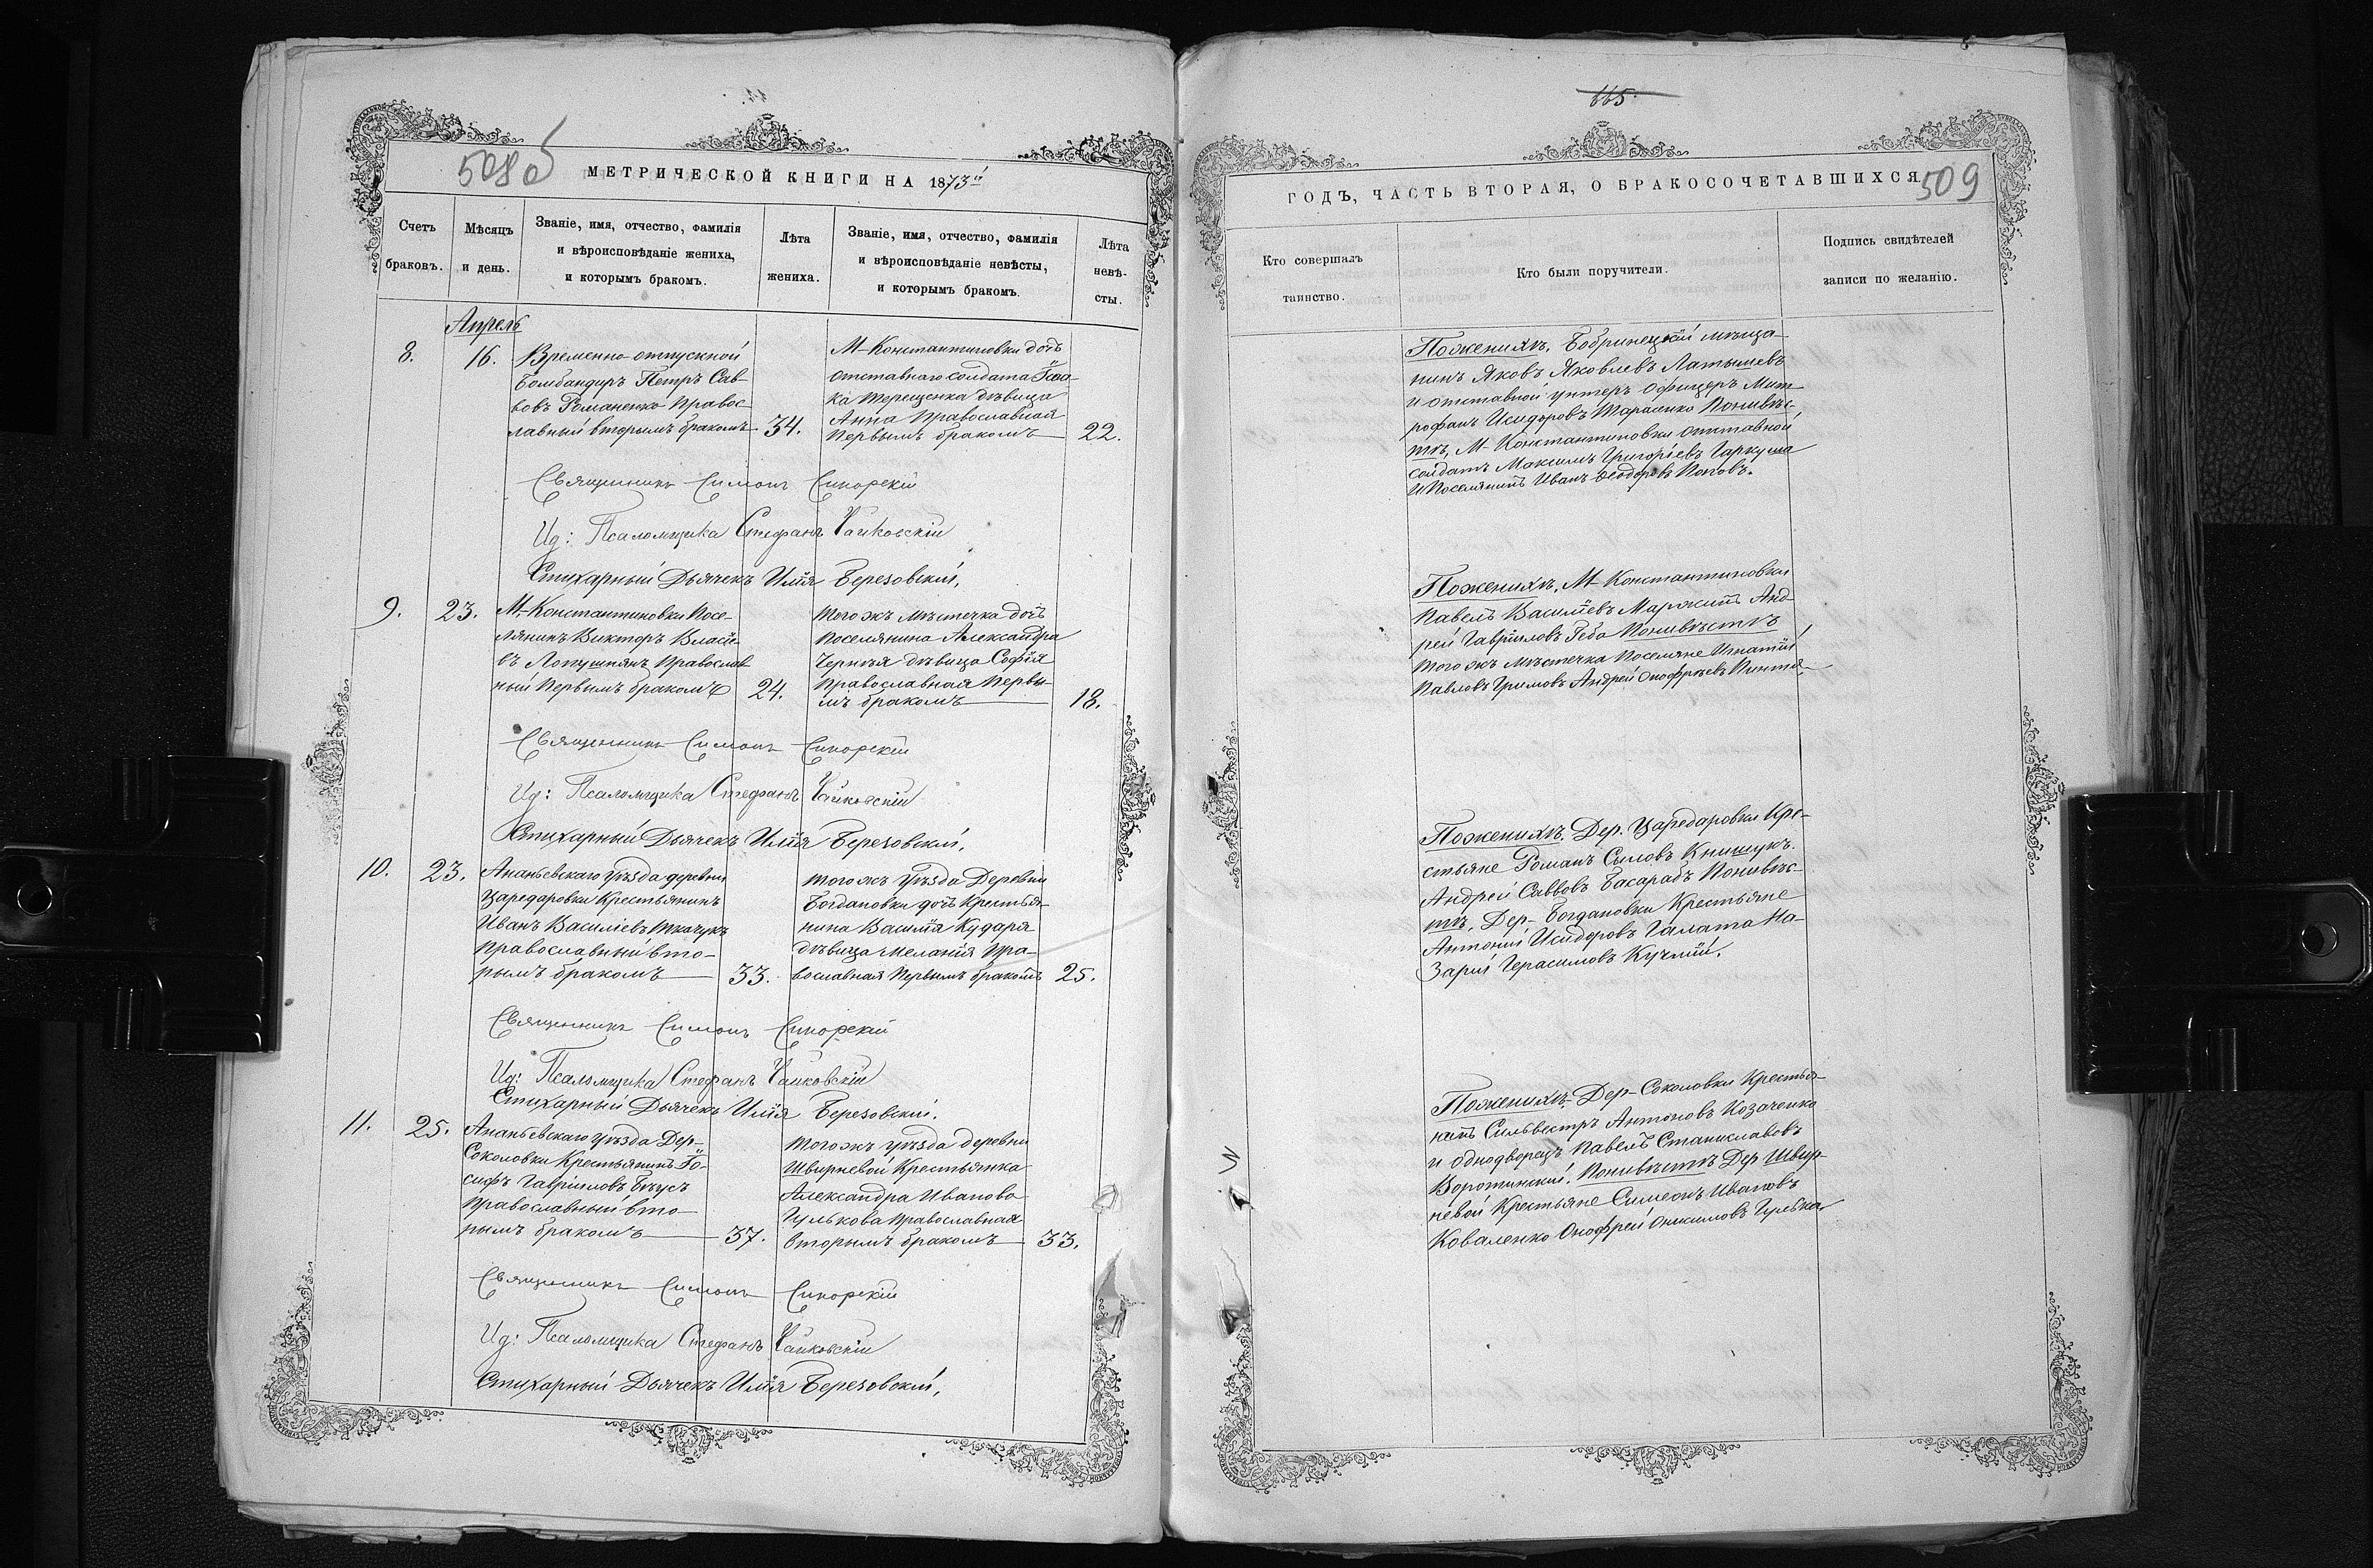 508 об
МЕТРИЧЕСКОЙ КНИГИ НА 1873й
Счетъ
браковъ.
Мѣсяцъ
и день.
Званіе, имя, отчество, фамилія
и вѣроисповѣданіе жениха,
и которымъ бракомъ.
Лѣта
жениха.
Званіе, имя, отчество, фамилія
и вѣроисповѣданіе невѣсты,
и которымъ бракомъ.
Лѣта
невѣ-
сты.
Апрель
8.
16.
Временно-отпускной
Бомбандиръ Петръ Сав-
вовъ Романенко Правос-
лавный вторымъ бракомъ
34.
М-Константиновки дочь
отставнаго солдата Ӏсаа-
ка Терещенка дѣвица
Анна Православная
Первымъ бракомъ
22.
Священникъ Симонъ Сикорскій
Ид: Псаломщика Стефанъ Чайковскій
Стихарный Дьячекъ Илія Березовскій.
9.
23.
М-Константиновки Посе-
лянинъ Викторъ Власіе-
въ Лопушнянъ Православ
ный Первымъ бракомъ
24.
того жъ мѣстечка дочь
поселянина Александра
Чернѣя дѣвица Софія
Православная Первы-
мъ бракомъ
18.
Священникъ Симонъ Сикорскій
Ид: Псаломщика Стефанъ Чайковскій
Стихарный Дьячекъ Илія Березовскій.
10.
23.
Ананьевскаго уѣзда деревни
Царедаровки Крестьянинъ
Иванъ Василіевъ Ткачукъ
Православный вто-
рымъ бракомъ
33.
того жъ уѣзда Деревни
Богдановки дочь Крестья-
нина Василія Кударя
дѣвица Меланія Пра-
вославная Первымъ бракомъ
25.
Священникъ Симонъ Сикорскій
Ид: Псаломщика Стефанъ Чайковскій
Стихарный Дьячекъ Илія Березовскій.
11.
25.
Ананьевскаго уѣзда Дер-
Соколовки Крестьянинъ Ӏо-
сифъ Гавріиловъ Бѣусъ
Православный вто-
рымъ бракомъ
37.
того жъ уѣзда деревни
Швырневой Крестьянка
Александра Иванова
Гулькова Православная
вторымъ бракомъ
33.
Священникъ Симонъ Сикорскій
Ид: Псаломщика Стефанъ Чайковскій
Стихарный Дьячекъ Илія Березовскій.
665.
ГОДЪ, ЧАСТЬ ВТОРАЯ, О БРАКОСОЧЕТАВШИХСЯ
509
Кто совершалъ
таинство.
Кто были поручители.
Подпись свидѣтелей
записи по желанію.
По женихѣ, Бобринецкій мѣща-
нинъ Яковъ Яковлевъ Латышевъ
и отставной унтеръ офицеръ Мит-
рофанъ Исидоровъ Тарасенко По невѣс-
тѣ, М-Константиновки отставной
солдатъ Максимъ Григоріевъ Гаркуша
и Поселянинъ Иванъ Ѳеодоровъ Поповъ.
По женихѣ, М-Константиновки
Павелъ Василіевъ Маржинъ Анд-
рей Гавріиловъ Геба По невѣстѣ
того жъ мѣстечка поселяне Игнатій
Павловъ Гримовъ Андрей Онофріевъ Пинтя.
По женихѣ, Дер. Царедаровки Кре-
стьяне Романъ Сыловъ Книшукъ.
Андрей Саввовъ Басарабъ По невѣс-
тѣ, Дер- Богдановки Крестьяне
Антоній Исидоровъ Галата На-
зарій Герасимовъ Кучмій.
По женихѣ, Дер-Соколовки Крестья-
нинъ Сильвестръ Антоновъ Козаченко
и однодворецъ Павелъ Станиславовъ
Воротинскій. По невѣстѣ Дер Швыр-
невой Крестьяне Симеонъ Ивановъ
Коваленко Онофрей Онисимовъ Гулька